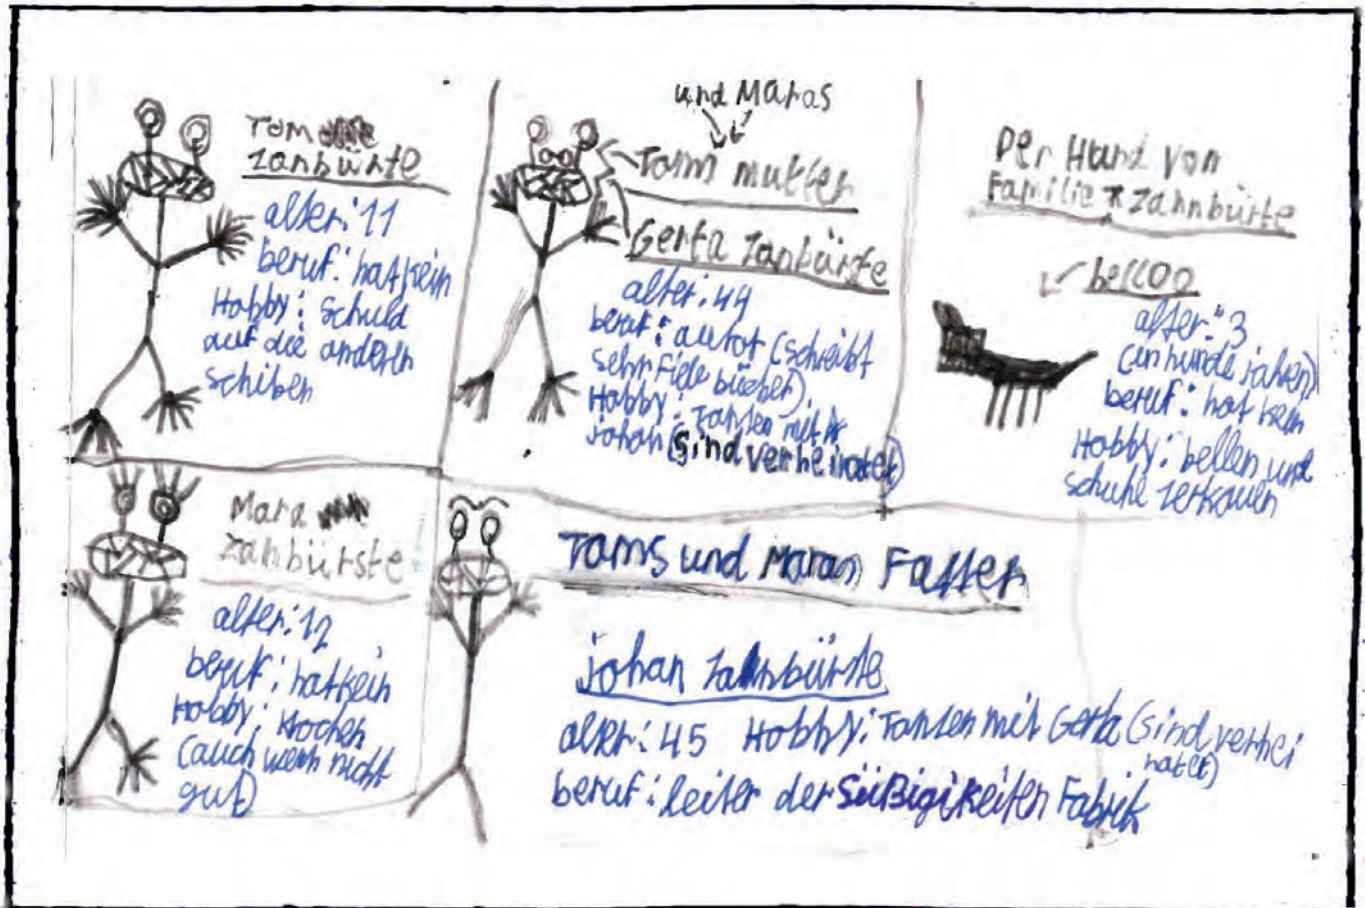 Tom
Zanbürste
alter: 11
beruf: hat kein
Hobby: schuld
auf die anderen
schiben
und Maras
Tom mutter
Gerta Zanbürste
alter: 44
beruf: autor (schreibt
sehr fiele bücher)
Hobby: Tanzen mit
johan (sind verheiratet)
Der Hund von
Familie Zahnbürste
belloo
alter: 3
(in hunde jahren)
beruf: hat kein
Hobby: bellen und
schuhe zerkauen
Mara
Zanbürste
alter: 12
beruf: hat kein
Hobby: Kochen
(auch wenn nicht
gut)
Toms und Maras Fatter
johan Zahnbürste
alter: 45 Hobby: Tanzen mit Gerta (sind verhei
ratet)
beruf: leiter der Süßigikeiten Fabrik